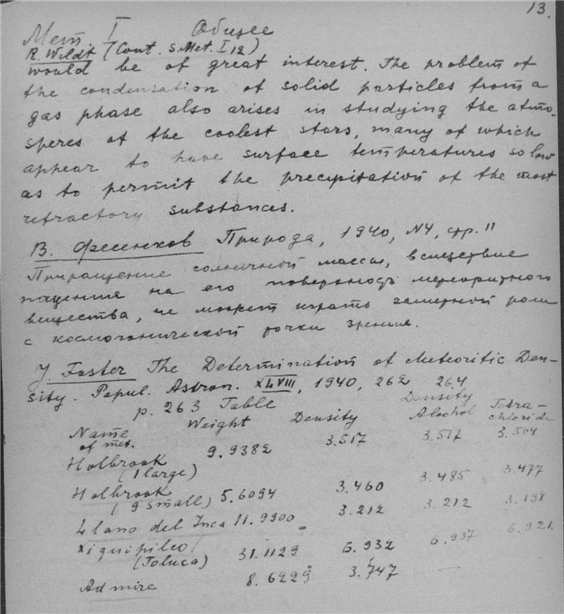 13.
Мет. I Общее
R. Wildt (Cont. s. Met. I 12)
would be of great interest. The problem of
the condensation of solid particles from a
gas phase also arises in studying the atmo-
speres of the coolest stars, many of which
appear to have surface temperatures so low
as to permit the precipitation of the most
refractory substances.
В. Фесенков Природа, 1940, N4, стр. 11
Приращение солнечной массы, вследствие
падения на его поверхность метеоритного
вещества, не может играть заметной роли
с космогонической точки зрения.
J Foster The Determination of Meteoritic Den-
sity. Popul. Astron. XLVIII, 1940, 262 264
p. 263 Table
Name of met. Weight Density Density Alcohol Tetra-chloride
Holbrook (1 large) 9.9382 3.517 3.517 3.504
Holbrook (9 small) 5.6094 3.460 3.485 3.477
Llano del Inca 11.9900 3.212 3.212 3.198
Xiquipilco (Toluca) 31.1129 6.932 6.937 6.921
Admire 8.6229 3.747 —